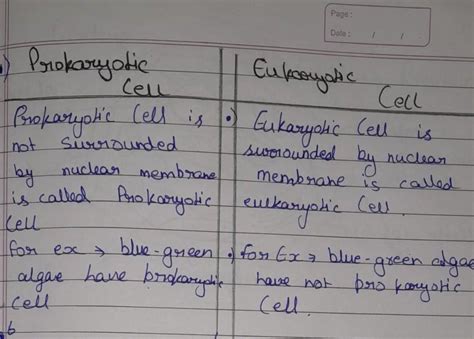 Page:
Date: / /
Prokaryotic
Cell
Prokaryotic Cell is
not Surrounded
by nuclear membrane
is called Prokaryotic
Cell
for ex → blue-green
algae have prokaryotic
Cell
6
Eukaryotic
Cell
•) Eukaryotic Cell is
surrounded by nuclear
membrane is called
eulkaryotic Cell.
•) for Ex → blue-green algae
have not prokaryotic
Cell.